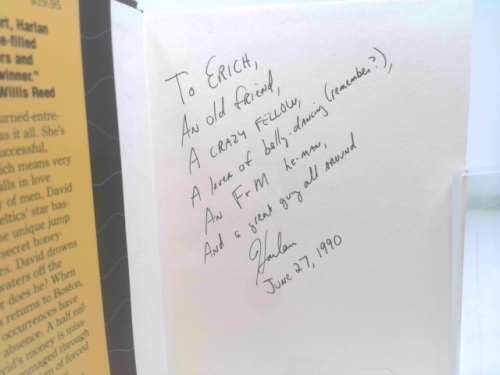 $19.95
rt, Harlan
e-filled
ers and
winner."
Willis Reed
urned-entre-
as it all. She's
uccessful,
ich means very
alls in love
y of men, David
eltics' star bas-
e unique jump
secret honey-
es. David drowns
waters off the
r does he? When
returns to Boston,
occurrences have
absence. A half mil-
vid's money is miss-
mmaged through
n of forced
To ERICH,
An old friend,
A CRAZY FELLOW,
A lover of belly-dancing (remember?),
An F+M he-man,
And a great guy all around
Harlan
June 27, 1990